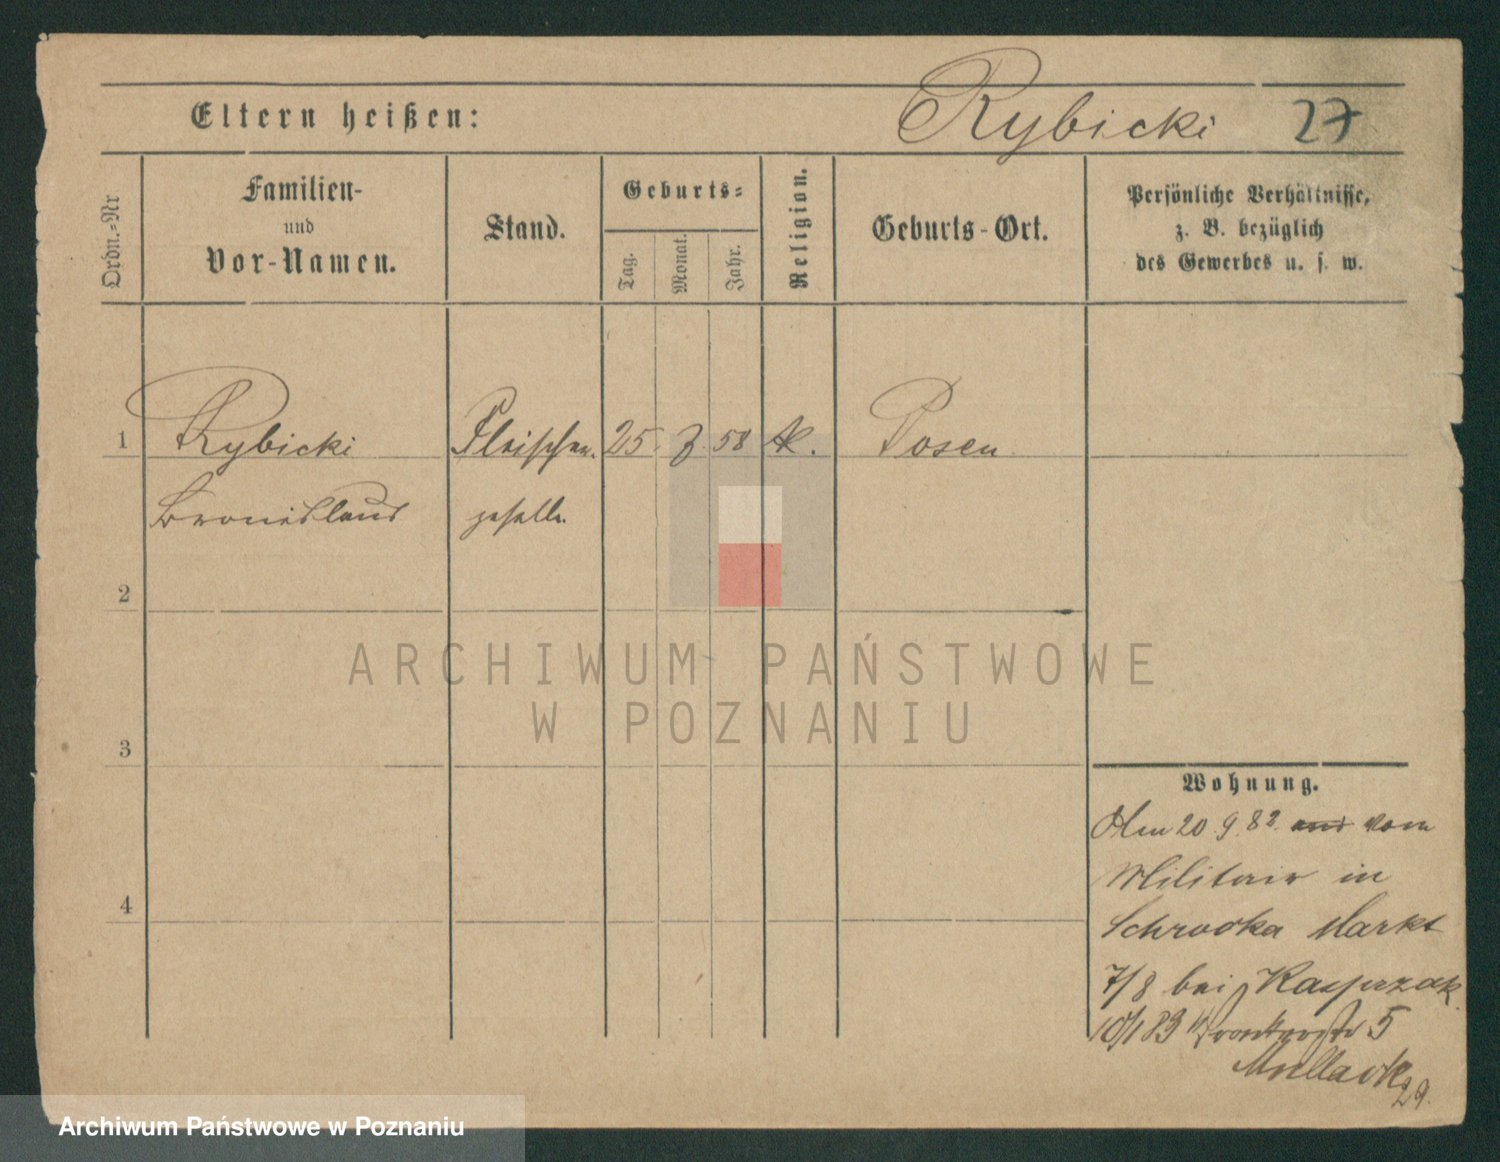 Eltern heißen: Rybicki 27
Ordn.-Nr
Familien-
und
Vor-Namen.
Stand.
Geburts-
Tag.
Monat.
Jahr.
Religion.
Geburts-Ort.
Persönliche Verhältnisse,
z. B. bezüglich
des Gewerbes u. s. w.
1 Rybicki Fleischer. 25. 58 k. Posen
Bronislaus geselle.
2
3
4
ARCHIWUM PAŃSTWOWE
W POZNANIU
Wohnung.
20.9.82. vom
Militair in
Schrodka Markt
7/8 bei Kasprzak
10/1 83 5
29.
Archiwum Państwowe w Poznaniu